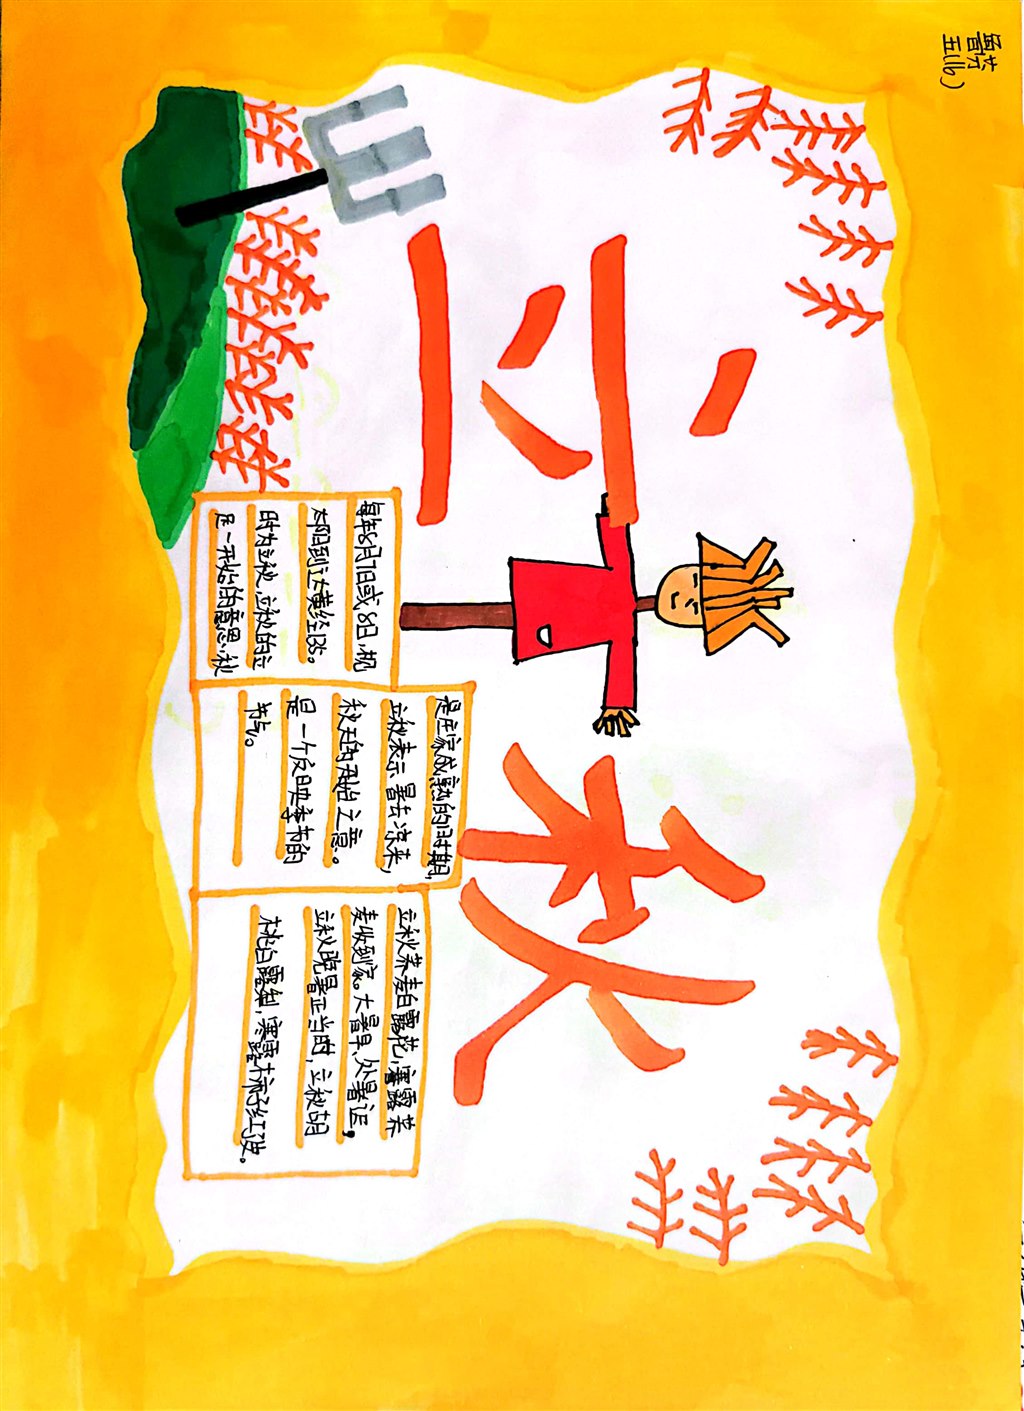 五(16)
立秋
每年8月7日或8日,视
太阳到达黄经135。
时为立秋,立秋的立
是一开始的意思,秋
是庄家成熟的时期,
立秋表示暑去凉来,
秋天的开始之意。
是一个反映季节的
节气。
立秋荞麦白露花,寒露荞
麦收到家。大暑早、处暑迟,
立秋晚暑正当时,立秋胡
桃白露梨,寒露柿子红皮。